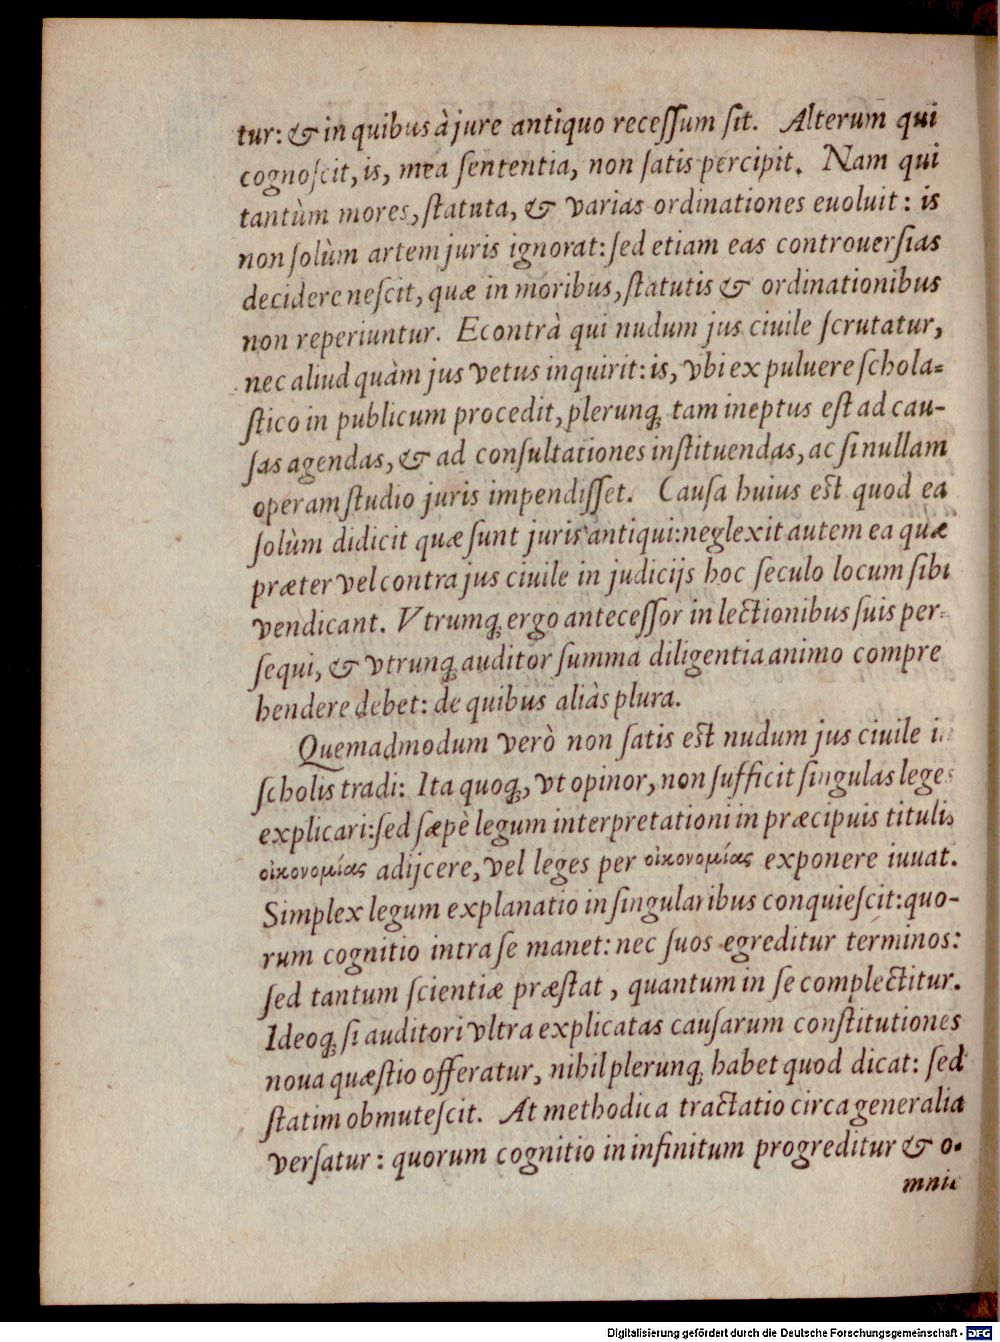 tur: & in quibus à jure antiquo recessum sit. Alterum qui
cognoscit, is, mea sententia, non satis percipit. Nam qui
tantùm mores, statuta, & varias ordinationes euoluit: is
non solùm artem juris ignorat: sed etiam eas controuersias
decidere nescit, quæ in moribus, statutis & ordinationibus
non reperiuntur. Econtrà qui nudum jus ciuile scrutatur,
nec aliud quàm jus vetus inquirit: is, vbi ex puluere schola=
stico in publicum procedit, plerunq; tam ineptus est ad cau-
sas agendas, & ad consultationes instituendas, ac si nullam
operam studio juris impendisset. Causa huius est quod ea
solùm didicit quæ sunt juris antiqui: neglexit autem ea quæ
præter vel contra jus ciuile in judicijs hoc seculo locum sibi
vendicant. Vtrumq; ergo antecessor in lectionibus suis per-
sequi, & vtrunq; auditor summa diligentia animo compre
hendere debet: de quibus aliàs plura.
Quemadmodum verò non satis est nudum jus ciuile in
scholis tradi: Ita quoq;, vt opinor, non sufficit singulas leges
explicari: sed sæpè legum interpretationi in præcipuis titulis
οἰκονομίας adijcere, vel leges per οἰκονομίας exponere iuuat.
Simplex legum explanatio in singularibus conquiescit: quo-
rum cognitio intra se manet: nec suos egreditur terminos:
sed tantum scientiæ præstat, quantum in se complectitur.
Ideoq; si auditori vltra explicatas causarum constitutiones
noua quæstio offeratur, nihil plerunq; habet quod dicat: sed
statim obmutescit. At methodica tractatio circa generalia
versatur: quorum cognitio in infinitum progreditur & o-
mnia
Digitalisierung gefördert durch die Deutsche Forschungsgemeinschaft - DFG